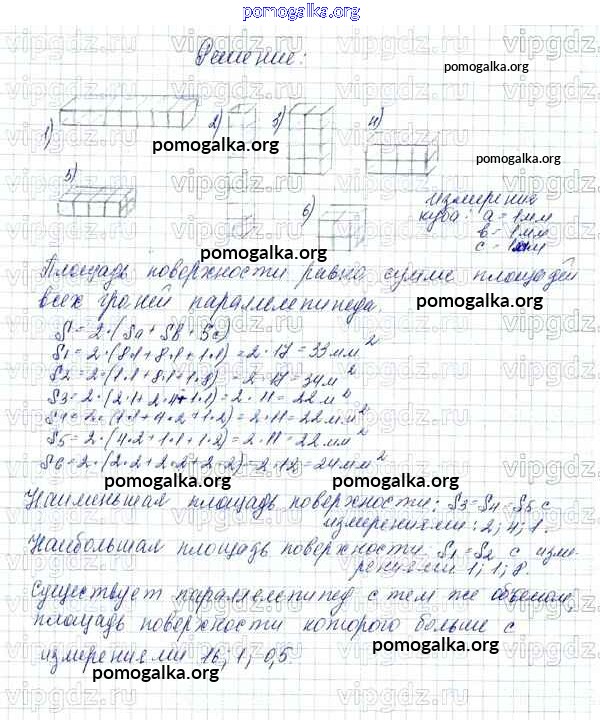 pomogalka.org
Решение:
pomogalka.org
1) 2) 3) 4)
pomogalka.org
pomogalka.org
5) 6)
измерение
куба: a = 1 мм
в = 1 мм
с = 1 мм
pomogalka.org
Площадь поверхности равна сумме площадей
всех граней параллелепипеда.
pomogalka.org
S = 2·(Sa + Sb + Sc)
S1 = 2·(8·1+8·1+1·1) = 2·17 = 33 мм²
S2 = 2·(1·1+8·1+1·8) = 2·17 = 34 м²
S3 = 2·(2·1+2·4+1·1) = 2·11 = 22 м²
S4 = 2·(1·1+4·2+1·2) = 2·11 = 22 мм²
S5 = 2·(4·2+1·1+1·2) = 2·11 = 22 мм²
S6 = 2·(2·2+2·2+2·2) = 2·12 = 24 мм²
pomogalka.org pomogalka.org
Наименьшая площадь поверхности: S3=S4=S5 с
измерениями: 2; 4; 1.
Наибольшая площадь поверхности S1=S2 с изме-
рениями 1; 1; 8.
pomogalka.org pomogalka.org
Существует параллелепипед с тем же объемом,
площадь поверхности которого больше с
измерениями 16; 1; 0,5
pomogalka.org pomogalka.org